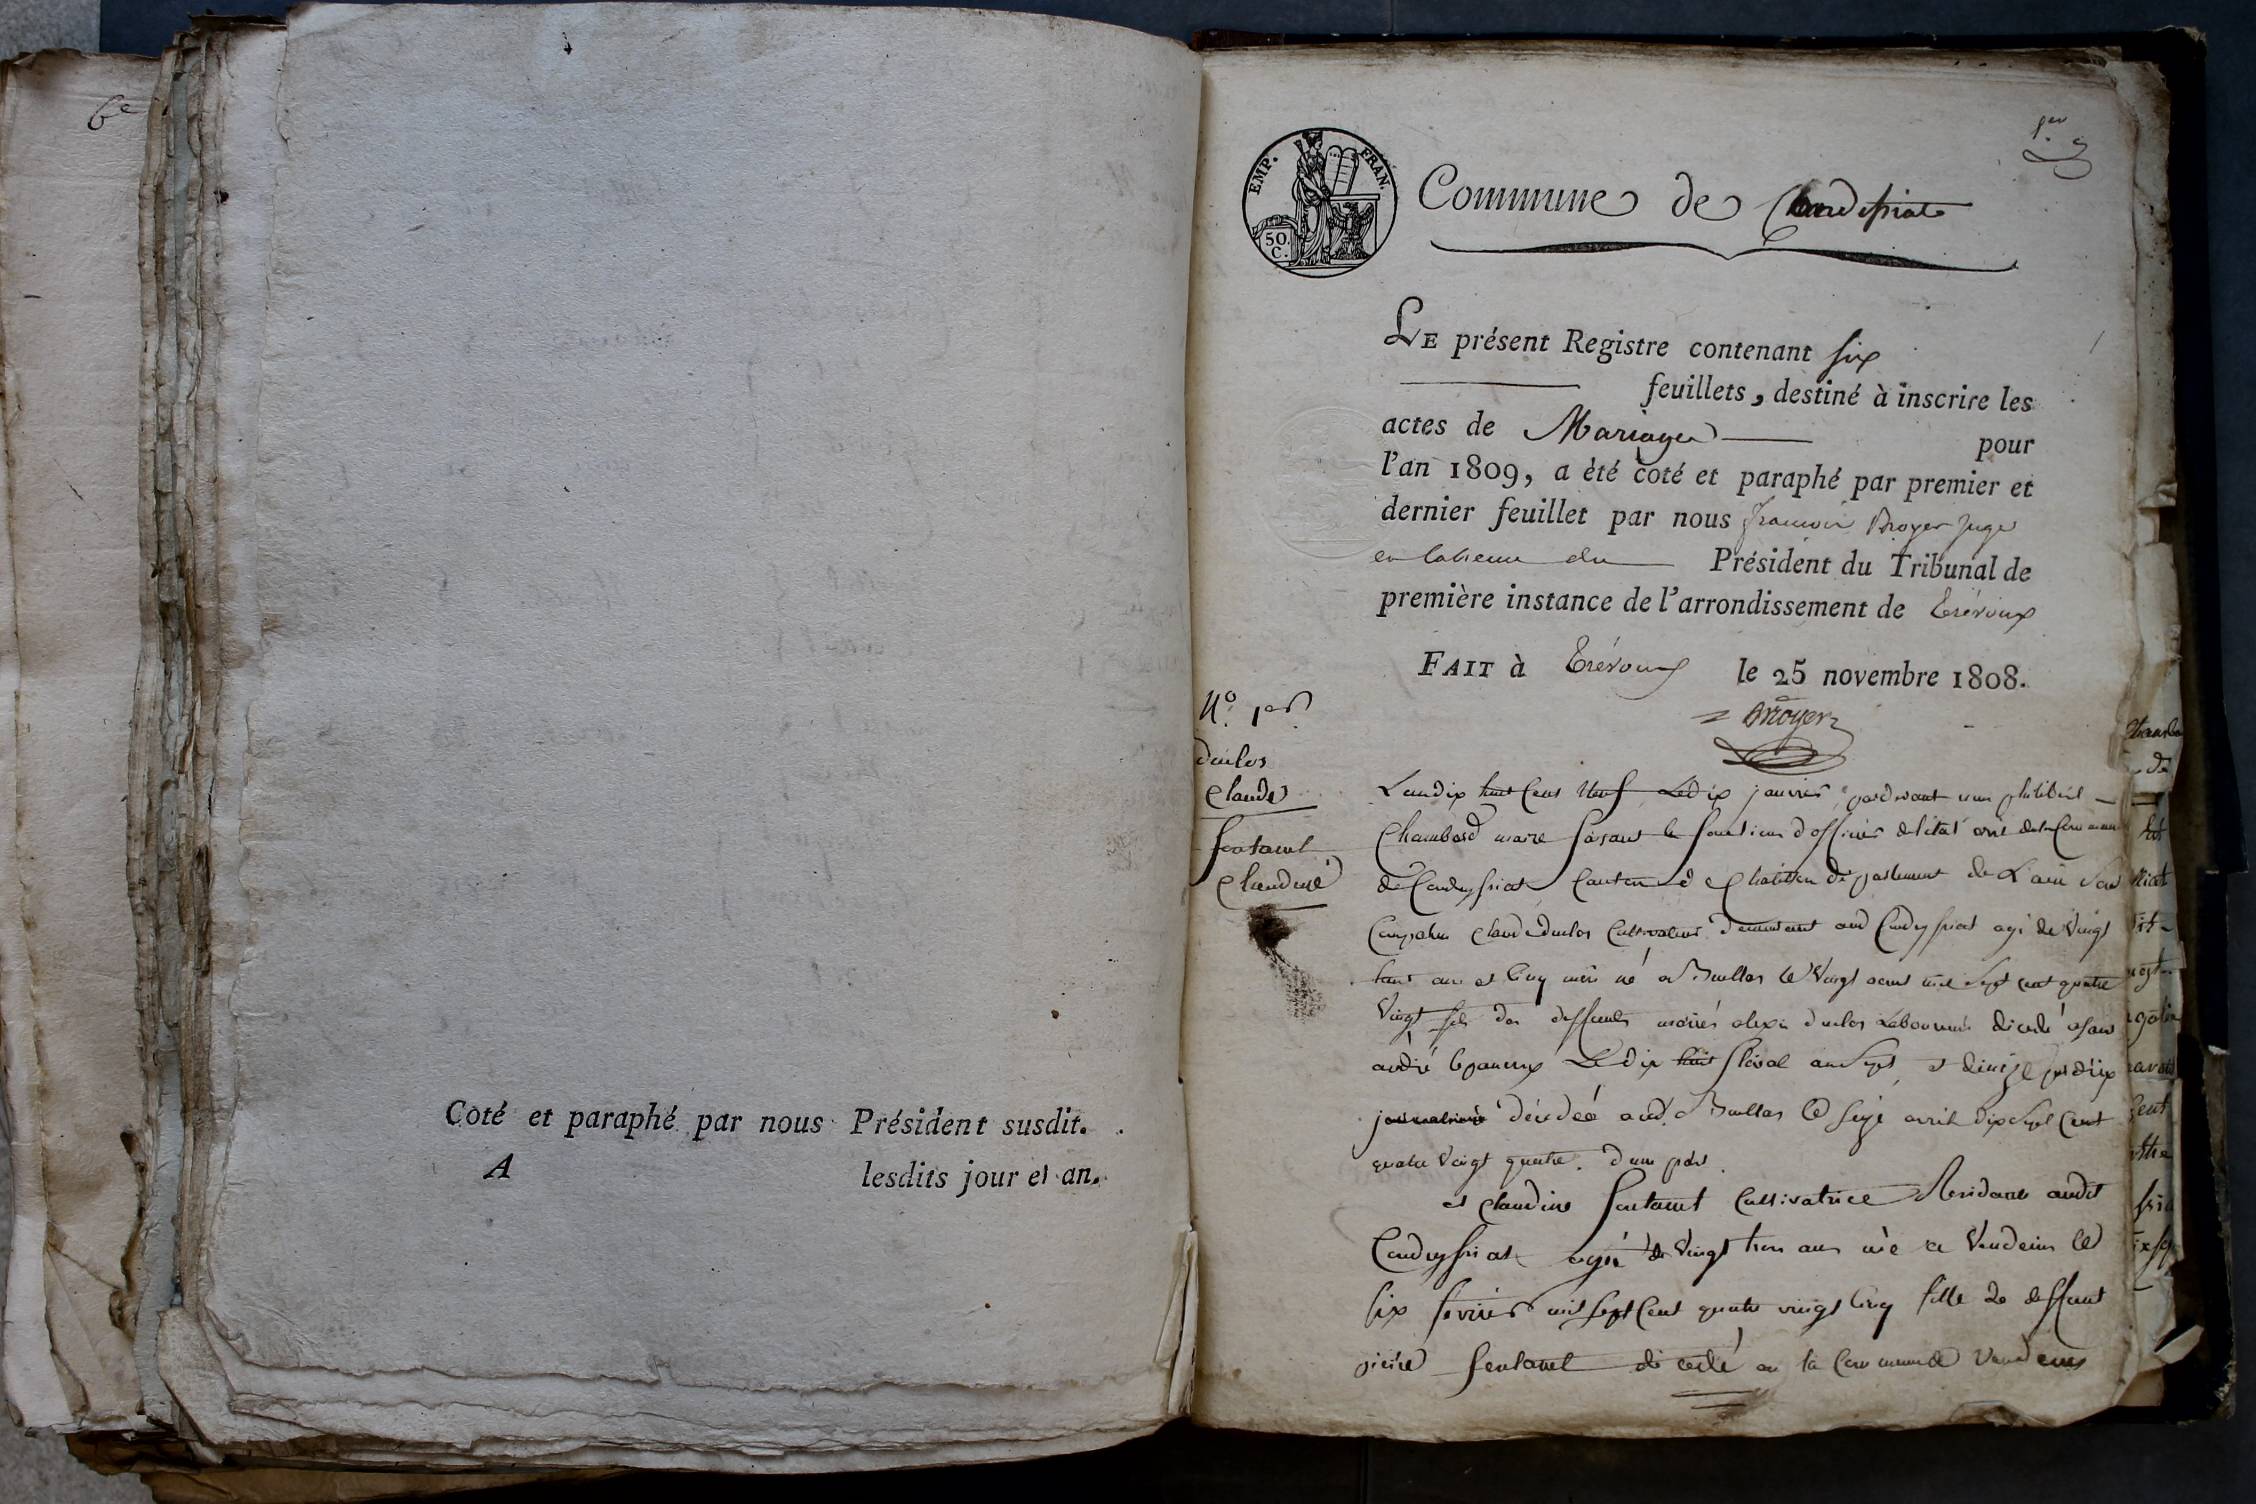 6e
Coté et paraphé par nous Président susdit.
A lesdits jour et an.
1er
EMP. FRAN.
50. C.
Commune de Condessiat
LE présent Registre contenant six
feuillets, destiné à inscrire les
actes de Mariages pour
l'an 1809, a été coté et paraphé par premier et
dernier feuillet par nous françois Broyer Juge
Président du Tribunal de
première instance de l'arrondissement de Trévoux
FAIT à Trévoux le 25 novembre 1808.
Broyer
N.o 1er
duclos
Claude
fontanel
Claudine
L'an dix huit Cens Neuf Le dix janvier pardevant nous philibert
Chambard maire faisant les fonctions d'officier de l'état civil de la Commune
de Condeyssiat Canton de Chatillon département de L'ain sont
Comparus Claude duclos Cultivateur demeurant aud Condeyssiat agé de Vingt
huit ans et Cinq mois né a Buellas le Vingt aout mil Sept cent quatre
Vingt fils des deffunts mariés alexis duclos Laboureur décédé a Saint
andré le panoux Le dix huit floréal an Sept et
journaliere décédée aud. Buellas le seize avril dix Sept Cent
quatre Vingt quatre. d'une part.
et Claudine fontanel Cultivatrice Residant audit
Condeyssiat agée de Vingt trois ans née a Vandeins le
six fevrier mil Sept Cent quatre vingt Cinq fille de deffunt
pierre fontanel décédé en la Commune de Vandeins